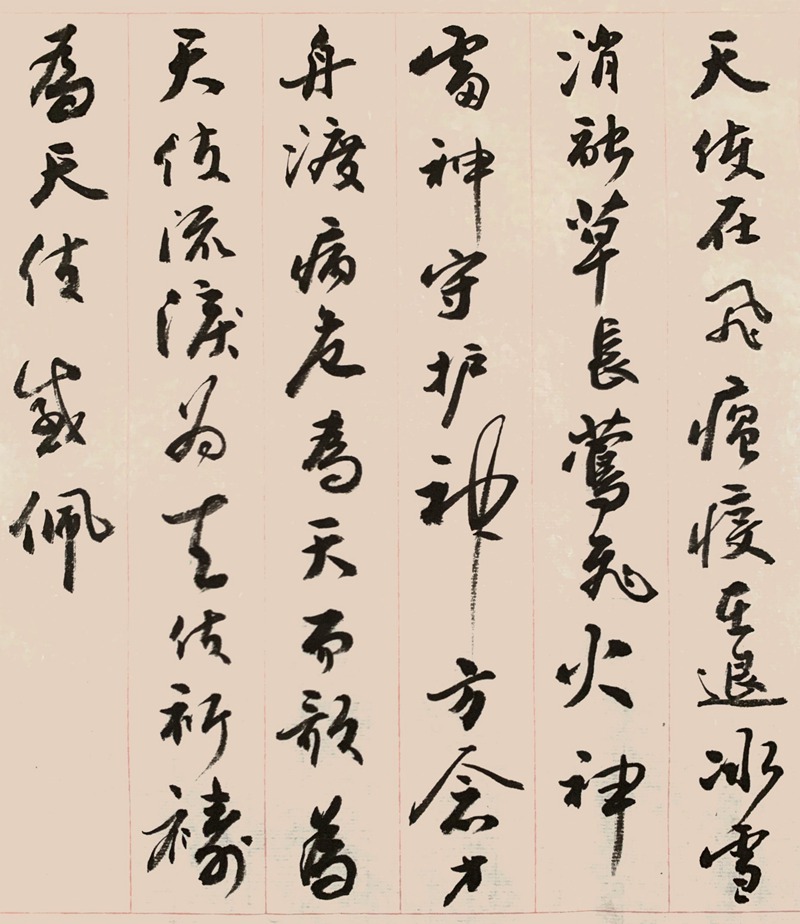 天使在飛瘟疫在退冰雪
消融草長鶯飛火神
雷神守护神方方
舟渡病危為天而歌為
天使流淚为天使祈禱
為天使感佩